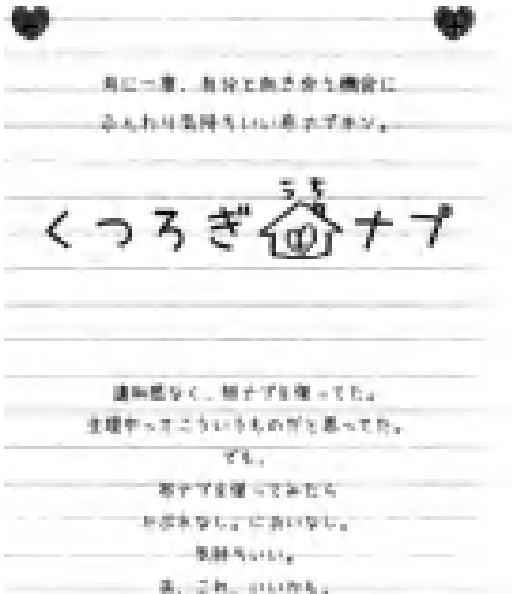 月に一度、自分と向き合う機会に
ふんわり気持ちいい布ナプキン。
うち
くつろぎナプ
違和感なく、紙ナプを使ってた。
生理やってこういうものだと思ってた。
でも、
布ナプを使ってみたら
かぶれなし。においなし。
気持ちいい。
あ、これ、いいかも。